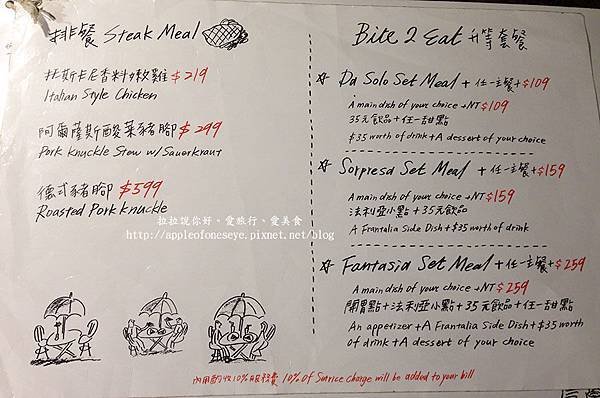 排餐 Steak Meal
托斯卡尼香料嫩雞 $219
Italian Style Chicken
阿爾薩斯酸菜豬腳 $299
Pork Knuckle Stew w/ Sauerkraut
德式豬腳 $599
Roasted Pork Knuckle
拉拉說你好。愛旅行、愛美食
http://appleofoneseye.pixnet.net/blog
Bite 2 Eat 升等套餐
☆ Da Solo Set Meal + 任一主餐+$109
A main dish of your choice +NT$109
35元飲品+任一甜點
$35 worth of drink+A dessert of your choice
☆ Sorpresa Set Meal + 任一主餐+$159
A main dish of your choice +NT$159
法利亞小點+35元飲品
A Frantalia Side Dish+$35 worth of drink
☆ Fantasia Set Meal+任一主餐+$259
A main dish of your choice +NT$259
開胃點+法利亞小點+35元飲品+任一甜點
An appetizer+A Frantalia Side Dish+$35 worth
of drink+A dessert of your choice
內用酌收10%服務費 10% of Survice charge will be added to your bill